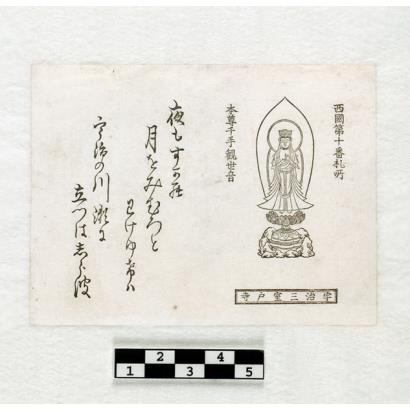 西國第十番札所
本尊千手観世音
宇治三室戸寺
夜もすがら
月をみむろと
わけゆけハ
宇治の川瀬に
立つは志ら波
1 2 3 4 5